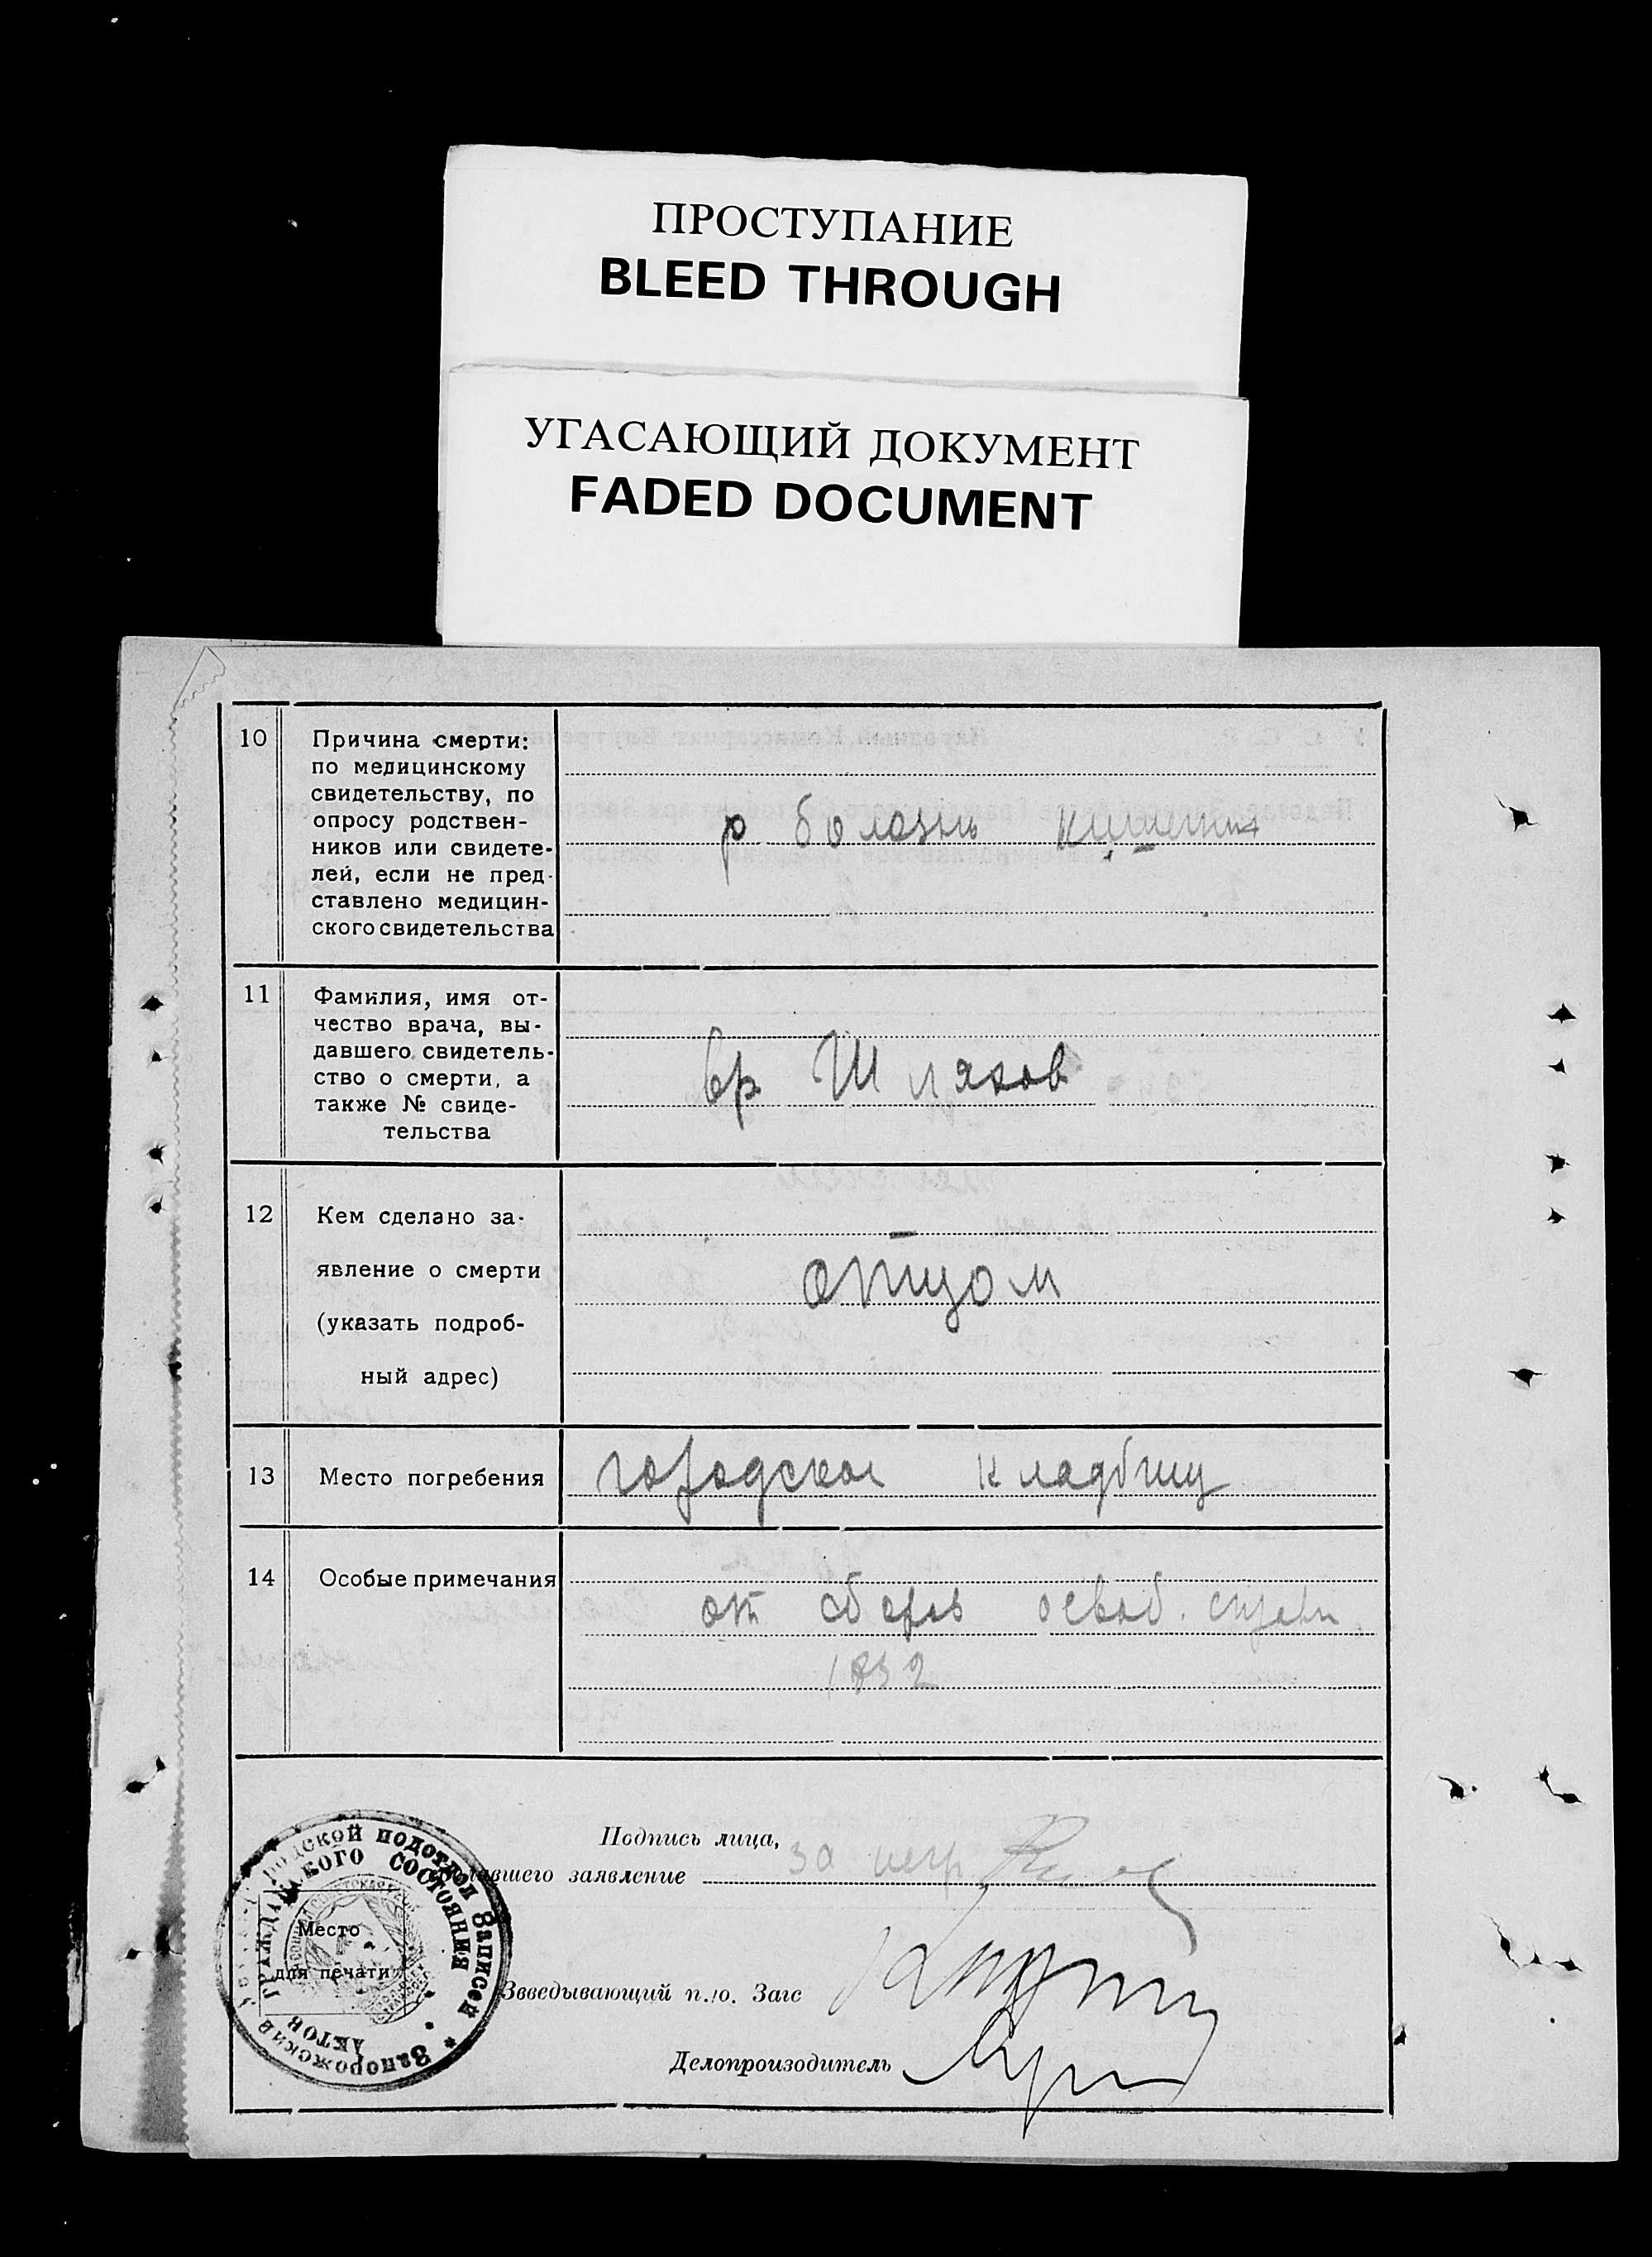 ПРОСТУПАНИЕ
BLEED THROUGH
УГАСАЮЩИЙ ДОКУМЕНТ
FADED DOCUMENT
10
Причина смерти:
по медицинскому
свидетельству, по
опросу родствен-
ников или свидете-
лей, если не пред-
ставлено медицин-
ского свидетельства
р болезнь
11
Фамилия, имя от-
чество врача, вы-
давшего свидетель-
ство о смерти, а
также № свиде-
тельства
вр Шляхов
12
Кем сделано за-
явление о смерти
(указать подроб-
ный адрес)
отцом
13
Место погребения
городское кладбищ
14
Особые примечания
от сбора освоб.
1832
Подпись лица,
давшего заявление
за негр
Зведывающий п.ю. Загс
Делопроизводитель
Место
для печати
Запорожский городской подотдел Записей
Актов Гражданского Состояния